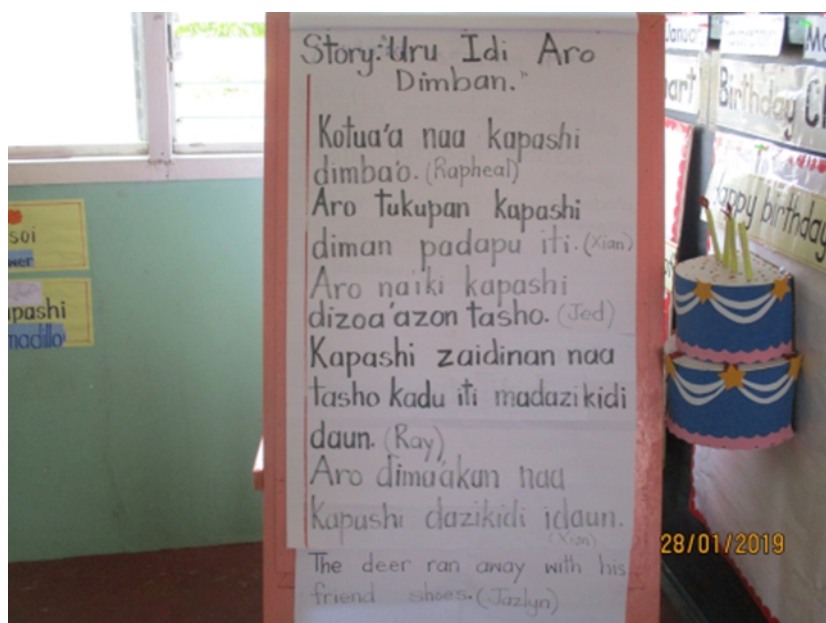 Story: "Uru Idi Aro
Dimban."
Kotua'a naa kapashi
dimba'o. (Rapheal)
Aro tukupan kapashi
diman padapu iti. (Xian)
Aro naiki kapashi
dizoa'azon tasho. (Jed)
Kapashi zaidinan naa
tasho kadu iti madazikidi
daun. (Ray)
Aro dima'akan naa
Kapashi dazikidi idaun.
(Xian)
The deer ran away with his
friend shoes. (Jazlyn)
soi
wer
pashi
madillo
Januar
Ma
art
Birthday C
Happy birthday
28/01/2019